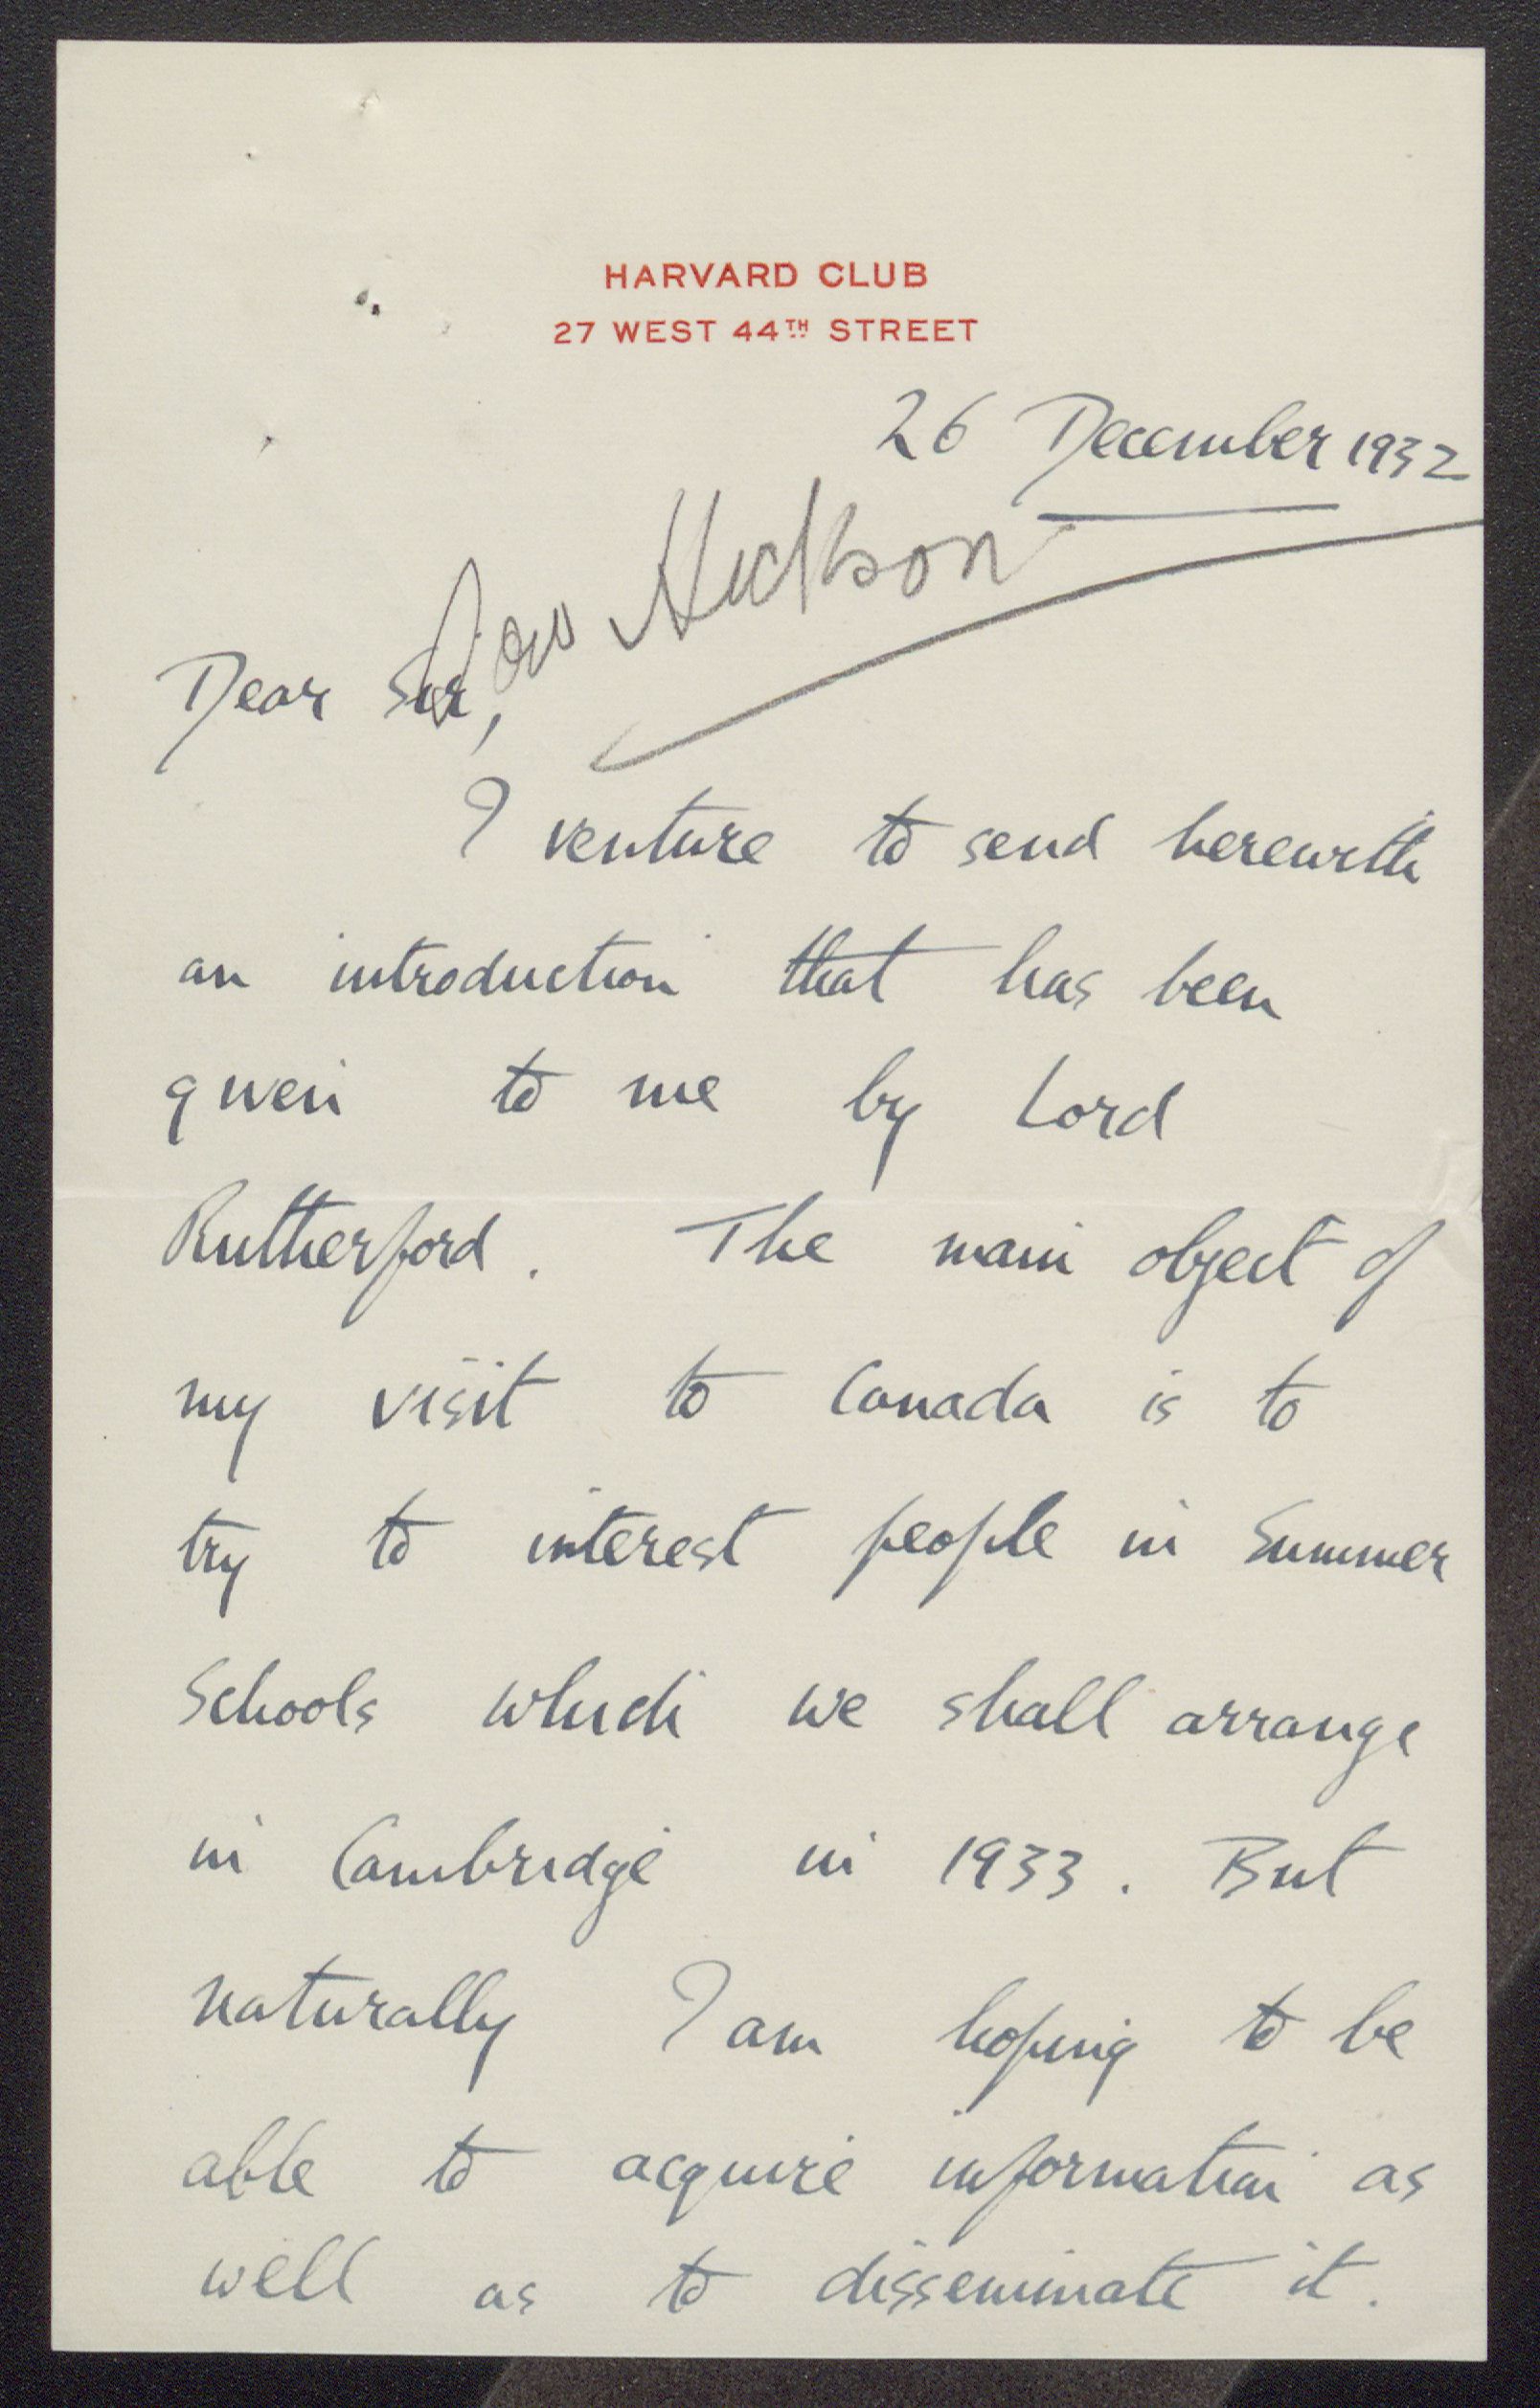 HARVARD CLUB
27 WEST 44TH STREET
26 December 1932
Hickson
Dear Sir,
I venture to send herewith
an introduction that has been
given to me by Lord
Rutherford. The main object of
my visit to Canada is to
try to interest people in Summer
Schools which we shall arrange
in Cambridge in 1933. But
naturally I am hoping to be
able to acquire information as
well as to disseminate it.